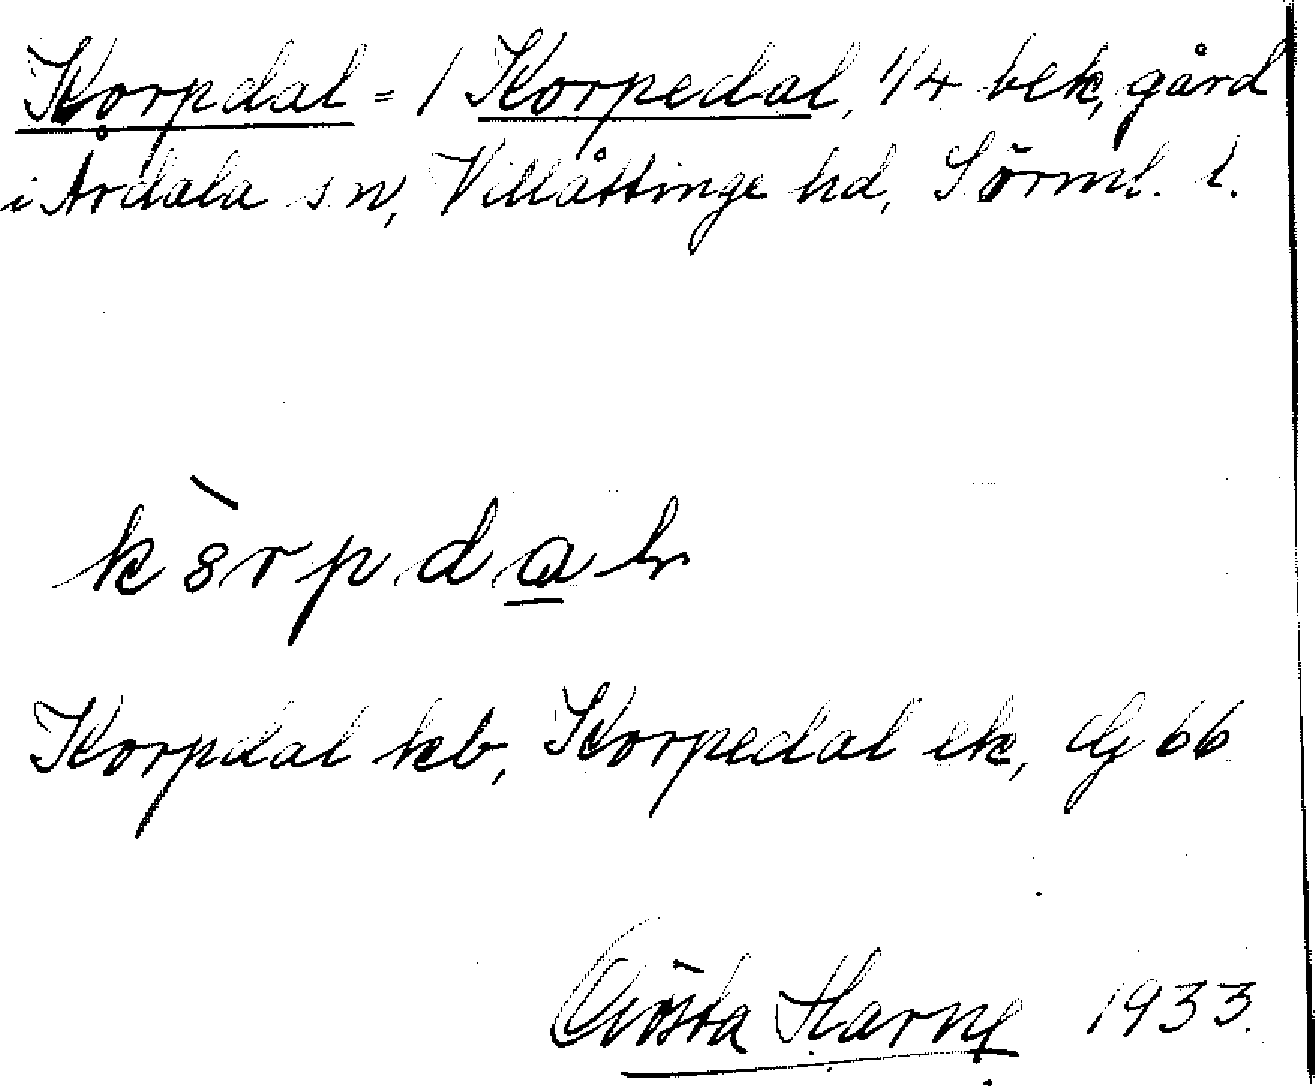 Korpdal = 1 Korpedal, 1/4 bek, gård
i Årdala sn, Villåttinge hd, Sörml. l.
kòrpdal
Korpdal kb, Korpedal ek, Gj 66
Gösta Harne 1933.